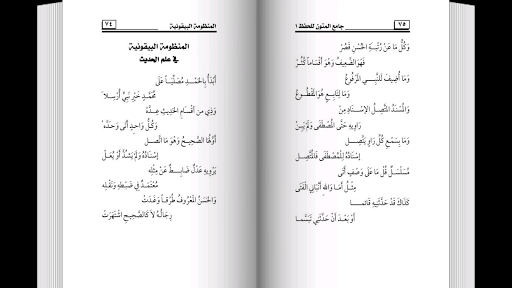 المنظومة البيقونية ٧٤
المنظومة البيقونية
في علم الحديث
أَبْدَأُ بِالحَمْدِ مُصَلِّيَاً عَلَى
مُحَمَّدٍ خَيْرِ نَبِيٍّ أُرْسِلاَ
وَذِي مِنَ اَقْسَامِ الحَدِيثِ عِدَّهْ
وَكُلُّ وَاحِدٍ أَتَى وَحَدَّهْ
أَوَّلُهَا الصَّحِيحُ وَهْوَ مَا اتَّصَل
إِسْنَادُهُ وَلَمْ يَشُذَّ أَوْ يُعَلّ
يَرْوِيهِ عَدْلٌ ضَابِطٌ عَنْ مِثْلِهِ
مُعْتَمَدٌ فِي ضَبْطِهِ وَنَقْلِهِ
وَالحَسَنُ المَعْرُوفُ طُرْقَاً وَغَدَتْ
رِجَالُهُ لاَ كَالصَّحِيحِ اشْتَهَرَتْ
٧٥ جامع المتون للحفظ ١
وَكُلُّ مَا عَنْ رُتْبَةِ الحُسْنِ قَصُرْ
فَهْوَ الضَّعِيفُ وَهْوَ أَقْسَاماً كُثُرْ
وَمَا أُضِيفَ لِلنَّبِي المَرْفُوعُ
وَمَا لِتَابِعٍ هُوَ المَقْطُوعُ
وَالمُسْنَدُ المُتَّصِلُ الإِسْنَادِ مِنْ
رَاوِيهِ حَتَّى المُصْطَفَى وَلَمْ يَبِنْ
وَمَا بِسَمْعِ كُلِّ رَاوٍ يَتَّصِل
إِسْنَادُهُ لِلْمُصْطَفَى فَالمُتَّصِل
مُسَلْسَلٌ قُلْ مَا عَلَى وَصْفٍ أَتَى
مِثْلُ أَمَا وَاللهِ أَنْبَانِي الْفَتَى
كَذَاكَ قَدْ حَدَّثَنِيهِ قَائِمَا
أَوْ بَعْدَ أَنْ حَدَّثَنِي تَبَسَّمَا